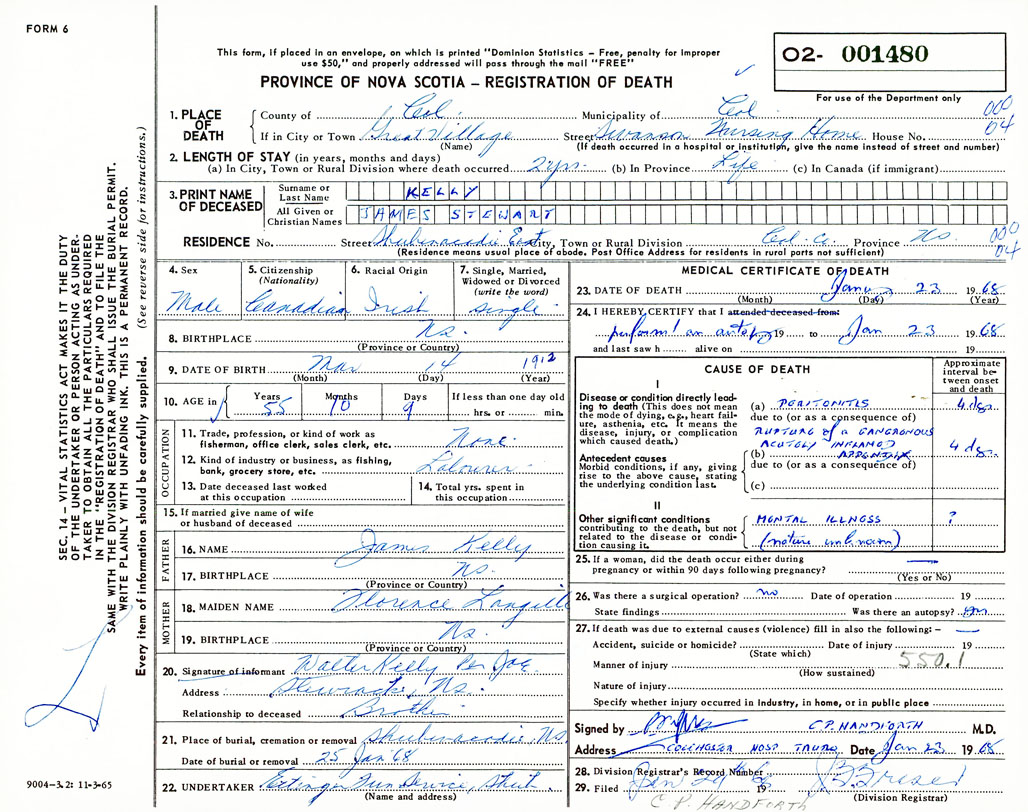 FORM 6
This form, if placed in an envelope, on which is printed "Dominion Statistics – Free, penalty for improper
use $50," and properly addressed will pass through the mail "FREE"
PROVINCE OF NOVA SCOTIA – REGISTRATION OF DEATH
O2- 001480
For use of the Department only
SEC. 14 – VITAL STATISTICS ACT MAKES IT THE DUTY
OF THE UNDERTAKER OR PERSON ACTING AS UNDER-
TAKER TO OBTAIN ALL THE PARTICULARS REQUIRED
IN THE "REGISTRATION OF DEATH" AND TO FILE THE
SAME WITH THE DIVISION REGISTRAR WHO SHALL ISSUE THE BURIAL PERMIT.
WRITE PLAINLY WITH UNFADING INK. THIS IS A PERMANENT RECORD.
Every item of information should be carefully supplied. (See reverse side for instructions.)
1. PLACE OF DEATH
County of Col. Municipality of Col 000
If in City or Town Great Village Street Swanson Nursing Home House No. 04
(Name) (If death occurred in a hospital or institution, give the name instead of street and number)
2. LENGTH OF STAY (in years, months and days)
(a) In City, Town or Rural Division where death occurred 2 yrs. (b) In Province Life (c) In Canada (if immigrant)
3. PRINT NAME OF DECEASED
Surname or Last Name KELLY
All Given or Christian Names JAMES STEWART
RESIDENCE No. Street Shubenacadie East City, Town or Rural Division Col. Co. Province NS 000 04
(Residence means usual place of abode. Post Office Address for residents in rural parts not sufficient)
4. Sex
Male
5. Citizenship (Nationality)
Canadian
6. Racial Origin
Irish
7. Single, Married, Widowed or Divorced (write the word)
single
8. BIRTHPLACE NS.
(Province or Country)
9. DATE OF BIRTH Mar 14 1912
(Month) (Day) (Year)
10. AGE in
Years Months Days If less than one day old
55 10 9 hrs. or min.
OCCUPATION
11. Trade, profession, or kind of work as
fisherman, office clerk, sales clerk, etc. None
12. Kind of industry or business, as fishing,
bank, grocery store, etc. Labourer
13. Date deceased last worked
at this occupation
14. Total yrs. spent in
this occupation
15. If married give name of wife
or husband of deceased
FATHER
16. NAME James Kelly
17. BIRTHPLACE NS.
(Province or Country)
MOTHER
18. MAIDEN NAME Florence Langille
19. BIRTHPLACE NS.
(Province or Country)
20. Signature of informant Walter Kelly Per
Address Stewiacke, NS.
Relationship to deceased Brother
21. Place of burial, cremation or removal Shubenacadie, NS
Date of burial or removal 25 Jan '68
22. UNDERTAKER Ettinger Fun Service, Shub.
(Name and address)
9004-3.2: 11-3-65
MEDICAL CERTIFICATE OF DEATH
23. DATE OF DEATH Jany 23 1968
(Month) (Day) (Year)
24. I HEREBY CERTIFY that I attended deceased from:
performed an autopsy 19 to Jan 23 1968
and last saw h alive on 19
CAUSE OF DEATH
Approximate interval between onset and death
I
Disease or condition directly leading to death (This does not mean the mode of dying, e.g., heart failure, asthenia, etc. It means the disease, injury, or complication which caused death.)
(a) PERITONITIS 4 dys.
due to (or as a consequence of)
RUPTURE of a GANGRENOUS
ACUTELY INFLAMED
Antecedent causes
Morbid conditions, if any, giving rise to the above cause, stating the underlying condition last.
(b) APPENDIX 4 dys.
due to (or as a consequence of)
(c)
II
Other significant conditions
contributing to the death, but not related to the disease or condition causing it.
MENTAL ILLNESS ?
(nature unknown)
25. If a woman, did the death occur either during
pregnancy or within 90 days following pregnancy? —
(Yes or No)
26. Was there a surgical operation? no Date of operation 19
State findings Was there an autopsy? yes
27. If death was due to external causes (violence) fill in also the following: – —
Accident, suicide or homicide? Date of injury 19
(State which) 550.1
Manner of injury
(How sustained)
Nature of injury
Specify whether injury occurred in Industry, in home, or in public place
Signed by C.P. HANDFORTH M.D.
Address COLCHESTER HOSP TRURO Date Jan 23 1968
28. Division Registrar's Record Number 5
29. Filed Jan 19
(Division Registrar)
C.P. HANDFORTH